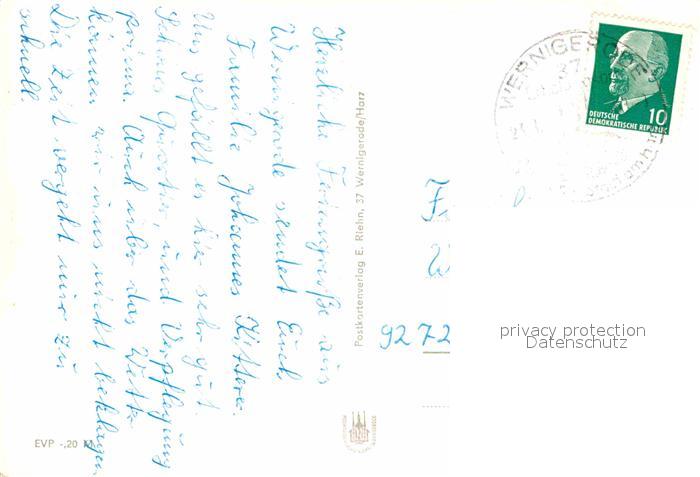 Herzliche Feriengrüße aus
Wernigerode sendet Euch
Familie Johannes
Uns gefällt es hier sehr gut.
Schönes Quartier, und Verpflegung
prima. Auch über das Wetter
können wir uns nicht beklagen
Die Zeit vergeht nur zu
schnell.
Postkartenverlag E. Riehn, 37 Wernigerode/Harz
EVP -,20 M
WERNIGERODE
37
10
DEUTSCHE
DEMOKRATISCHE REPUBLIK
F
W
9272
privacy protection
Datenschutz